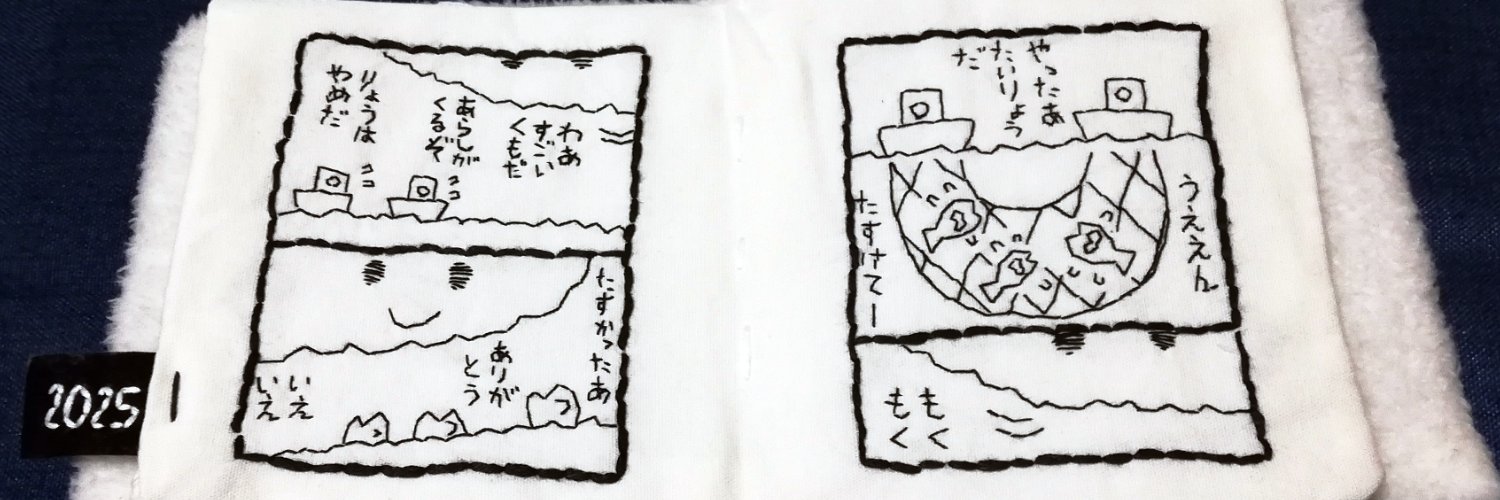 やったあ
たいりょう
だ
うええん
たすけてー
もく
もく
わあ
すごい
くもだ
あらしが
くるぞ
ココ
りょうは
やめだ
ココ
たすかったあ
ありが
とう
いえ
いえ
2025